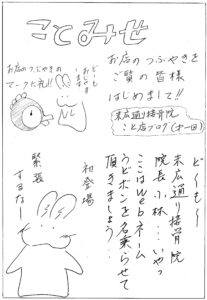 ことみせ
お店のつぶやきを
ご覧の皆様
はじめまして!!
末広通り接骨院
こと店ブログ(オ一回)
ど〜も〜
おじゃま
しまーす
お店のつぶやきの
マークに礼!!
ど〜も〜
末広通り接骨院
院長小林…いやっ
ここはWebネーム
うどボンを名乗らせて
頂きましょう…
初登場
緊張
するなー